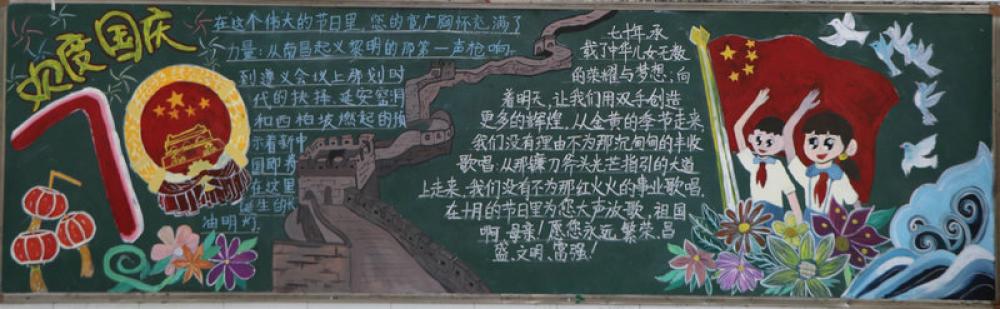 欢度国庆
70
在这个伟大的节日里,您的宽广胸怀充满了
力量:从南昌起义黎明的那第一声枪响,
到遵义会议上席划时
代的抉择,延安窑洞
和西柏坡燃起的
示着新中
国即将
在这里
诞生的
油明灯.
七十年,承
载了中华儿女无数
的荣耀与梦想;向
着明天,让我们用双手创造
更多的辉煌.从金黄的季节走来,
我们没有理由不为那沉甸甸的丰收
歌唱:从那镰刀斧头光芒指引的大道
上走来,我们没有不为那红火火的事业歌唱.
在十月的节日里为您大声放歌,祖国
啊,母亲!愿您永远繁荣、昌
盛、文明、富强!